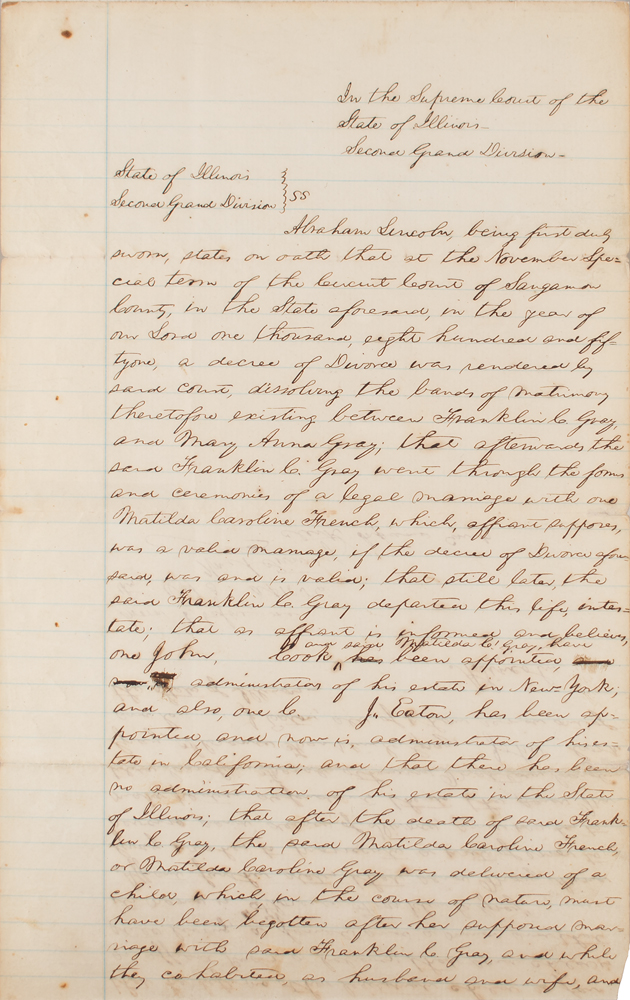 In the Supreme Court of the
State of Illinois
Second Grand Division—
State of Illinois
Second Grand Division } SS
Abraham Lincoln, being first duly
sworn, states on oath that at the November Spe=
cial term of the Circuit Court of Sangamon
County, in the State aforesaid, in the year of
our Lord one thousand, eight hundred and fif-
tyone, a decree of Divorce was rendered by
said court, dissolving the bands of matrimony
theretofore existing between Franklin C. Gray,
and Mary Anna Gray; that afterwards the
said Franklin C. Gray went through the forms
and ceremonies of a legal marriage with one
Matilda Caroline French, which, affiant supposes,
was a valid marriage, if the decree of Divorce afore-
said, was and is valid; that still later, the
said Franklin C. Gray departed this life, intes-
tate; that as affiant is informed and believes,
and said Matilda C. Gray, have
one John, Cook has been appointed,
administrator of his estate in New-York;
and also, one C J. Eaton, has been ap-
pointed and now is, administrator of his es-
tate in California; and that there has been
no administration of his estate in the State
of Illinois; that after the death of said Frank-
lin C. Gray, the said Matilda Caroline French,
or Matilda Caroline Gray was delivered of a
child, which in the course of nature, must
have been begotten after her supposed mar-
riage with said Franklin C. Gray, and while
they cohabited, as husband and wife, and